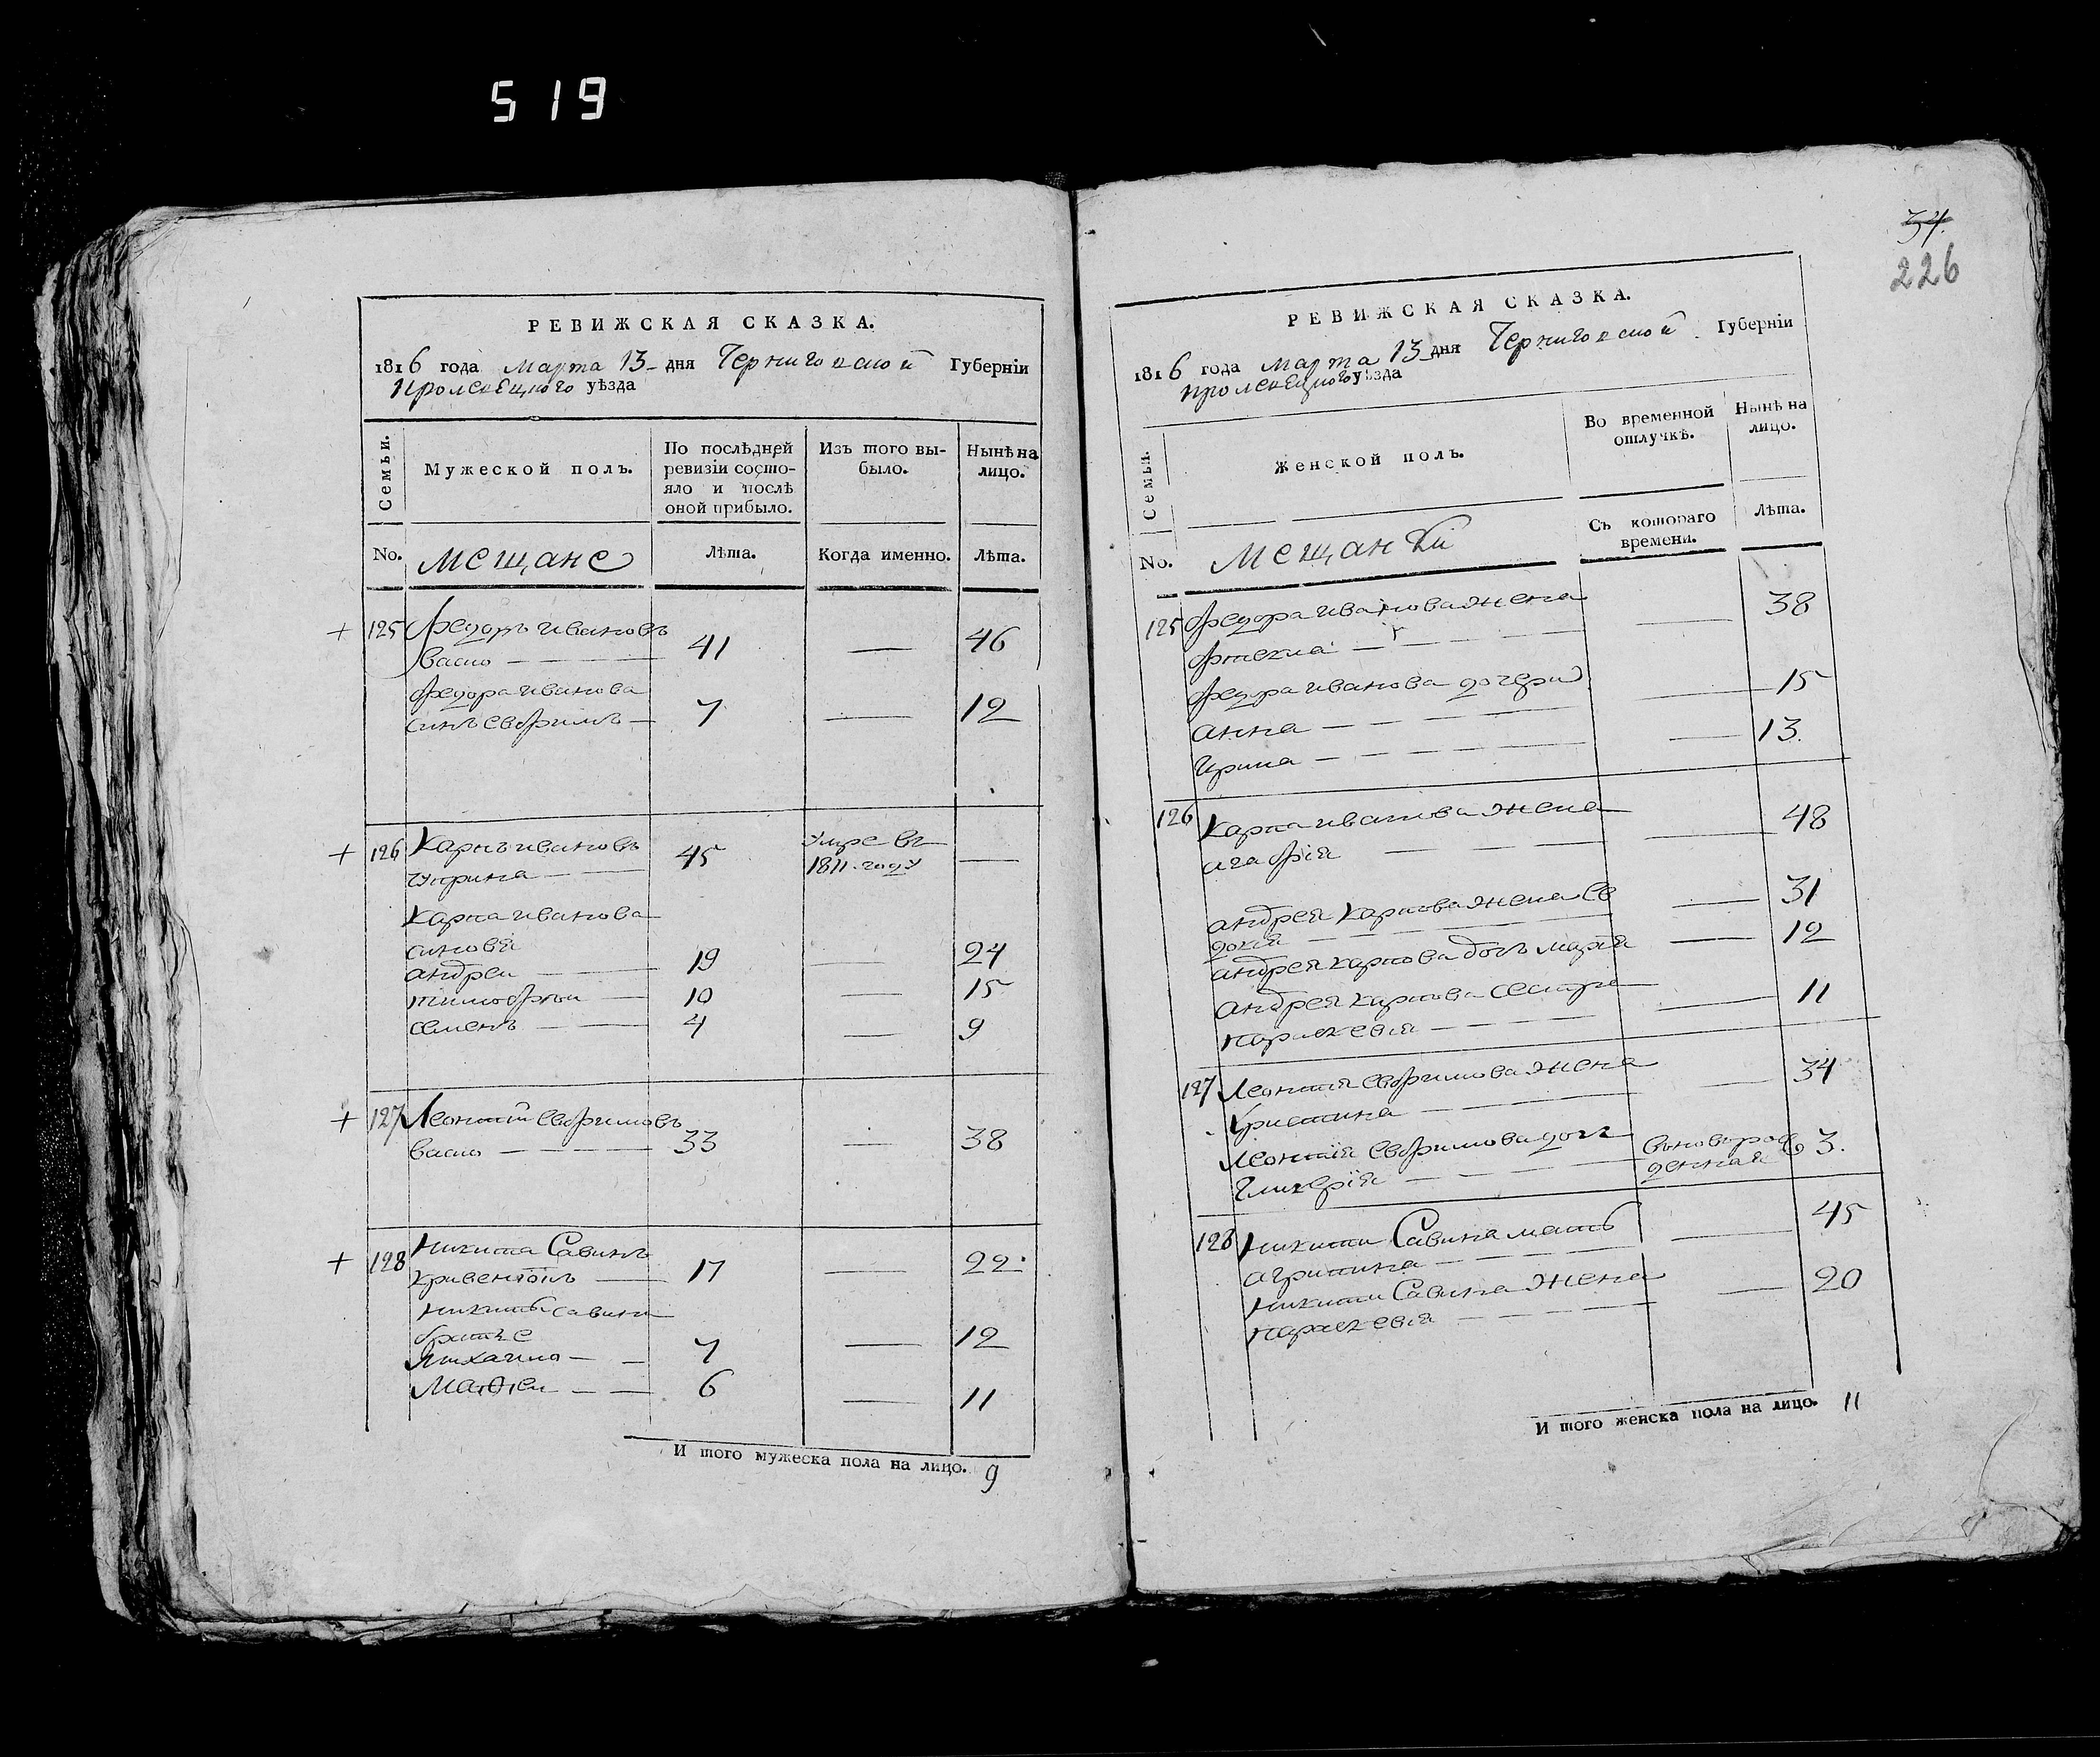 519
РЕВИЖСКАЯ СКАЗКА.
1816 года марта 13 дня Черниговской Губерніи
Кролевецкого уѣзда
Семьи.
Мужеской полъ.
По послѣдней ревизіи состо-
яло и послѣ
оной прибыло.
Изъ того вы-
было.
Нынѣ на
лицо.
No. мещане Лѣта. Когда именно. Лѣта.
+ 125 Федоръ Ивановъ
41 — 46
Федора Иванова
синъ Евфимъ — 7 — 12
+ 126 Карпъ Ивановъ 45 Умре въ
Чуприна — 1811. году —
Карпа Иванова
синовя
андреи — 19 — 24
тимофѣи — 10 — 15
семенъ — 4 — 9
+ 127 Леонтій Евфимовъ
33 — 38
+ 128 Никита Савинъ
17 — 22
Никиты Савина
братье
7 — 12
Матфеи — 6 — 11
И того мужеска пола на лицо. 9
34.
226
РЕВИЖСКАЯ СКАЗКА.
1816 года марта 13 дня Черниговской Губерніи
Кролевецкого уѣзда
Семьи.
Женской полъ.
Во временной
отлучкѣ.
Нынѣ на
лицо.
No. мещанки
Съ котораго
времени.
Лѣта.
125 Федора Иванова жена — 38
Фтекла —
Федора Иванова дочери
анна — 15
Ирина — 13.
126 Карпа Иванова жена — 48
агафія —
андрея Карпова жена Ев — 31
докія —
андрея Карпова дочъ марія — 12
андрея Карпова сестра — 11
параскевія —
127 Леонтія Евфимова жена — 34
Христина —
Леонтія Евфимова дочъ вновърож 3.
Гликерія — денная
128 Никити Савина мать — 45
агрипина —
Никити Савина жена — 20
параскевія —
И того женска пола на лицо. 11